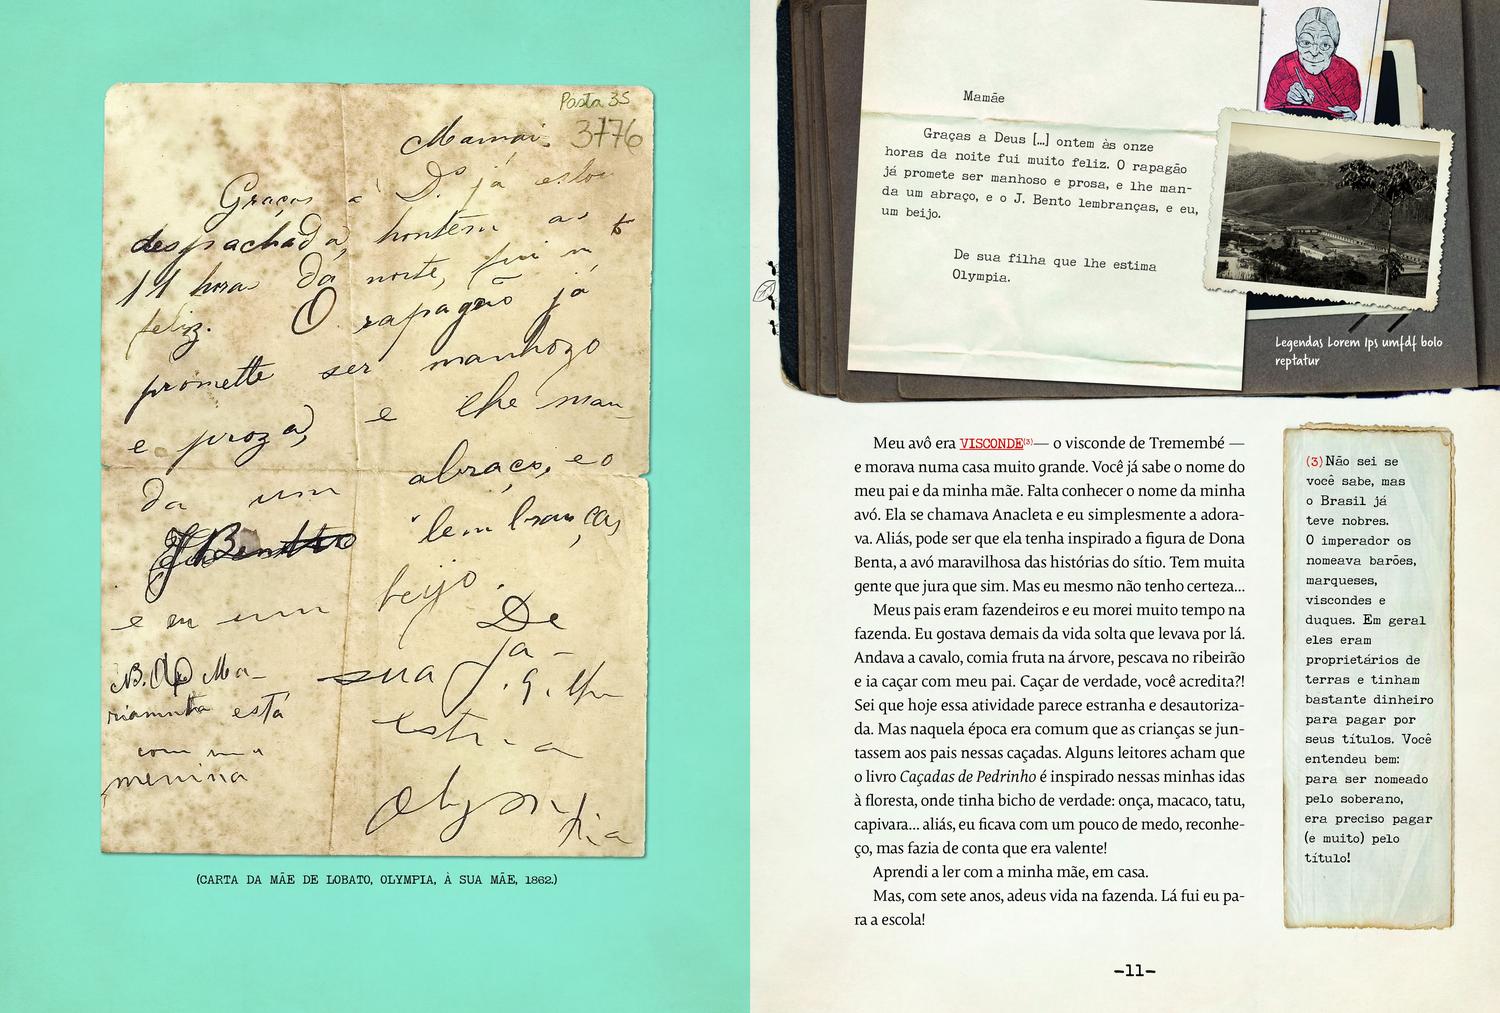 Pasta 35
3776
Mamai
Graças a Ds já estou
despachada, hontem as
11 horas da noite, fui m
feliz. O rapagão já
promette ser manhozo
e proza, e lhe man-
da um abraço, e o
J Bento lembranças
e eu um beijo.
De
sua
N. B. Ma-
está
com
menina
Olympia
(CARTA DA MÃE DE LOBATO, OLYMPIA, À SUA MÃE, 1862.)
Mamãe
Graças a Deus [...] ontem às onze
horas da noite fui muito feliz. O rapagão
já promete ser manhoso e prosa, e lhe man-
da um abraço, e o J. Bento lembranças, e eu,
um beijo.
De sua filha que lhe estima
Olympia.
Legendas Lorem Ips umfdf bolo
reptatur
Meu avô era VISCONDE(3)— o visconde de Tremembé —
e morava numa casa muito grande. Você já sabe o nome do
meu pai e da minha mãe. Falta conhecer o nome da minha
avó. Ela se chamava Anacleta e eu simplesmente a adora-
va. Aliás, pode ser que ela tenha inspirado a figura de Dona
Benta, a avó maravilhosa das histórias do sítio. Tem muita
gente que jura que sim. Mas eu mesmo não tenho certeza...
Meus pais eram fazendeiros e eu morei muito tempo na
fazenda. Eu gostava demais da vida solta que levava por lá.
Andava a cavalo, comia fruta na árvore, pescava no ribeirão
e ia caçar com meu pai. Caçar de verdade, você acredita?!
Sei que hoje essa atividade parece estranha e desautoriza-
da. Mas naquela época era comum que as crianças se jun-
tassem aos pais nessas caçadas. Alguns leitores acham que
o livro Caçadas de Pedrinho é inspirado nessas minhas idas
à floresta, onde tinha bicho de verdade: onça, macaco, tatu,
capivara... aliás, eu ficava com um pouco de medo, reconhe-
ço, mas fazia de conta que era valente!
Aprendi a ler com a minha mãe, em casa.
Mas, com sete anos, adeus vida na fazenda. Lá fui eu pa-
ra a escola!
(3) Não sei se
você sabe, mas
o Brasil já
teve nobres.
O imperador os
nomeava barões,
marqueses,
viscondes e
duques. Em geral
eles eram
proprietários de
terras e tinham
bastante dinheiro
para pagar por
seus títulos. Você
entendeu bem:
para ser nomeado
pelo soberano,
era preciso pagar
(e muito) pelo
título!
—11—